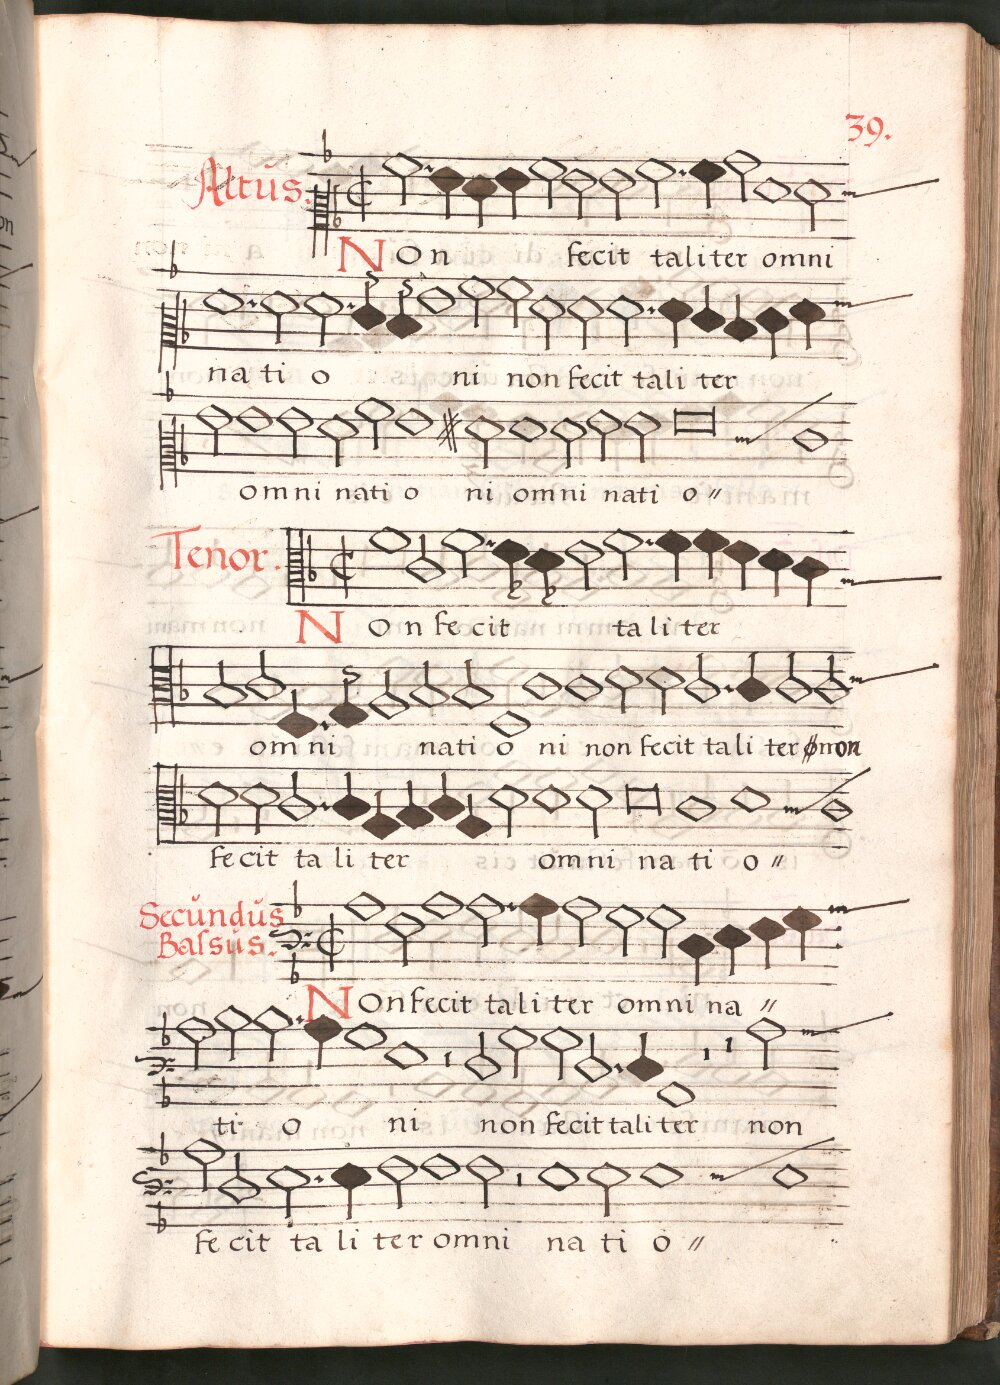 39.
Altus.
NOn fecit taliter omni
na ti o ni non fecit tali ter
omni nati o ni omni nati o //
Tenor.
NOn fe cit ta li ter
omni nati o ni non fecit tali ter non
fe cit ta li ter omni na ti o //
Secundus
Bassus.
NOn fecit taliter omni na //
ti o ni non fecit taliter non
fe cit ta li ter omni na ti o //